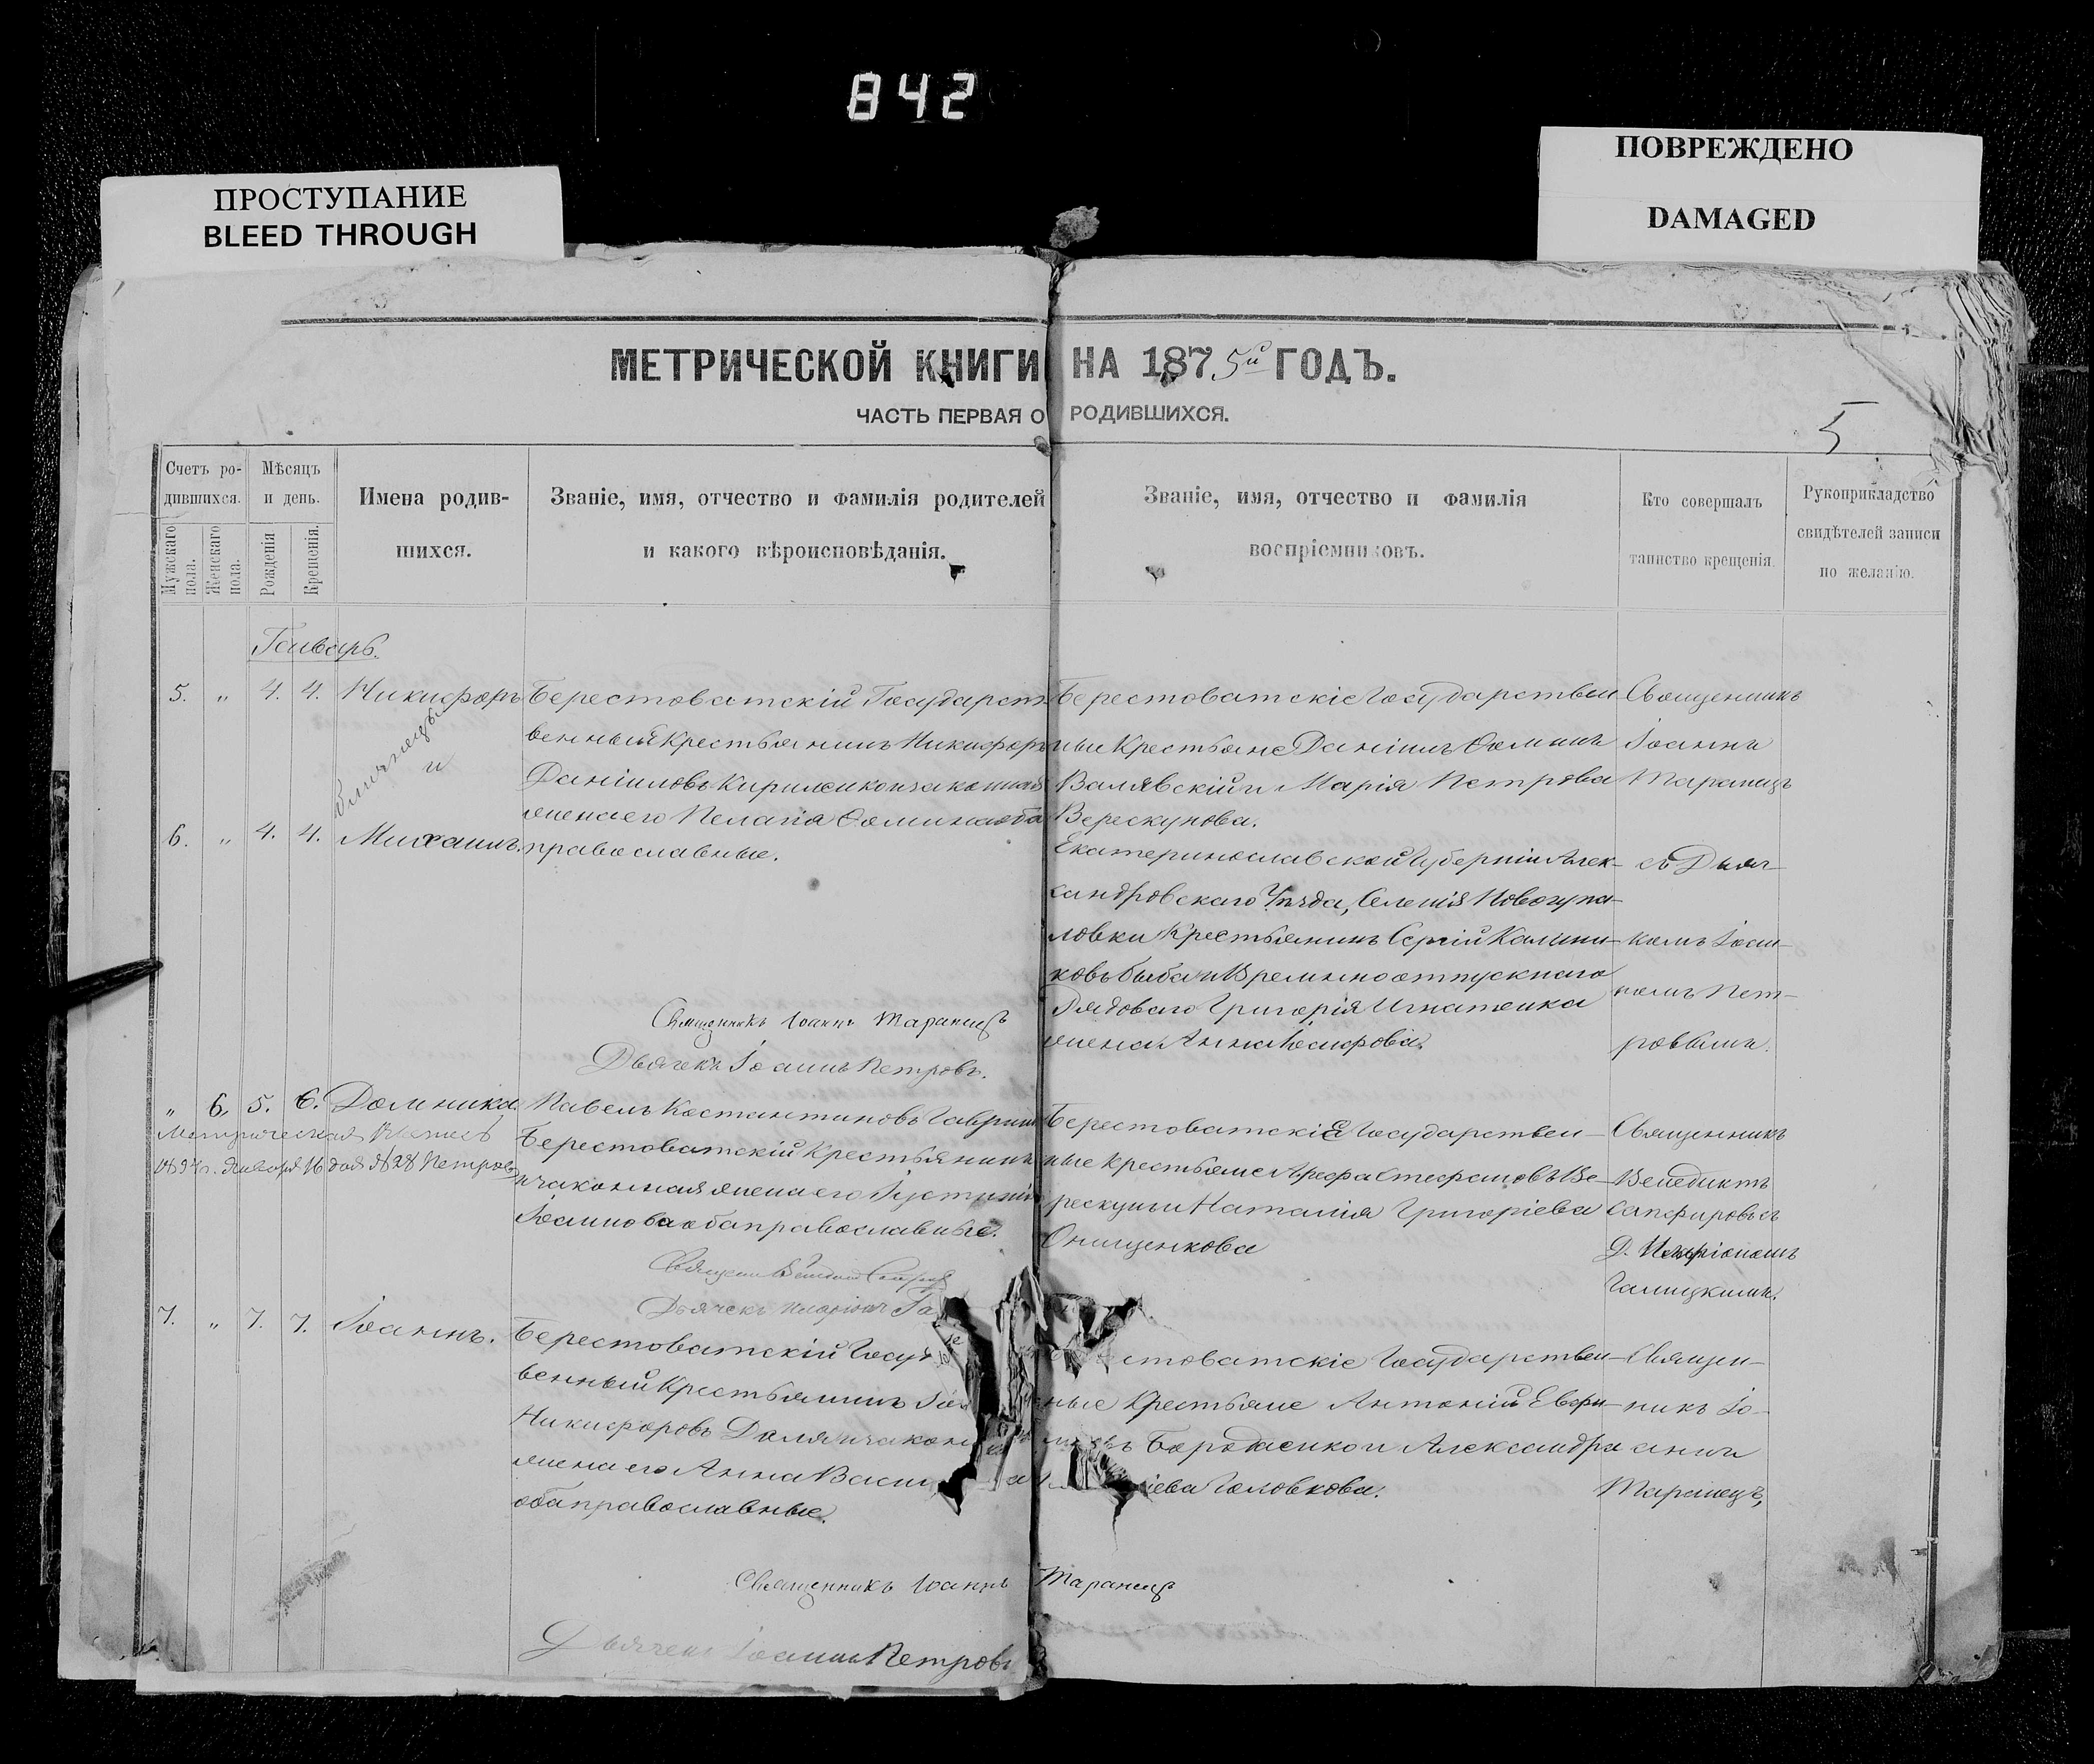 842
ПРОСТУПАНИЕ
BLEED THROUGH
ПОВРЕЖДЕНО
DAMAGED
МЕТРИЧЕСКОЙ КНИГИ НА 1875й ГОДЪ.
ЧАСТЬ ПЕРВАЯ О РОДИВШИХСЯ.
5
Счетъ ро-
дившихся.
Мужскаго пола.
Женскаго пола.
Мѣсяцъ
и день.
Рожденія
Крещенія.
Имена родив-
шихся.
Званіе, имя, отчество и фамилія родителей
и какого вѣроисповѣданія.
Званіе, имя, отчество и фамилія
воспріемниковъ.
Кто совершалъ
таинство крещенія.
Рукоприкладство
свидѣтелей записи
по желанію.
Генварь.
5. „ 4. 4. Никифоръ
близнецы
и
6. „ 4. 4. Михаилъ.
Берестоватскій Государст-
венный Крестьянинъ Никифоръ
Даніиловъ Кириленко и законная
жена его Пелагія Ѳомина оба
православные.
Берестоватскіе Государствен
ные Крестьяне Даніилъ Ѳоминъ
Валявскій и Марія Петрова
Верескунова.
Екатеринославской Губерніи Алек-
сандровскаго Уѣзда, Селенія Новогупа-
ловки Крестьянинъ Сергій Калини-
ковъ Быба и Временноотпускнаго
Рядоваго Григорія Игнатенка
жена Анна Іосифова.
Священникъ
Іоаннъ
Таранецъ
съ Дьяч-
комъ Іоан-
номъ Пет-
ровымъ.
Священникъ Іоаннъ Таранецъ
Дьячекъ Іоаннъ Петровъ.
„ 6. 5. 6. Домника.
Метрическая
Павелъ Костантиновъ Гаврил
Берестоватскій Крестьянинъ
и законная жена его Іустинія
Іоаннова оба православные.
Берестоватскіе Государствен-
ные крестьяне Арефа Стефановъ Ве-
рескунъ и Наталія Григоріева
Онищенкова
Священникъ
Венедиктъ
Сапфировъ съ
Д. Иларіономъ
Галицкимъ.
Дьячекъ Иларіонъ Га
7. „ 7. 7. Іоаннъ.
Берестоватскій Госуд
венный Крестьянинъ Іоа
Никифоровъ Доля и закон
жена его Анна Васил
оба православные.
стоватскіе Государствен-
ные Крестьяне Антоній Евфи-
Бородаенко и Александра
іева Головкова.
Священ-
никъ Іо-
аннъ
Таранецъ,
Священникъ Іоаннъ Таранецъ
Дьячекъ Іоаннъ Петровъ